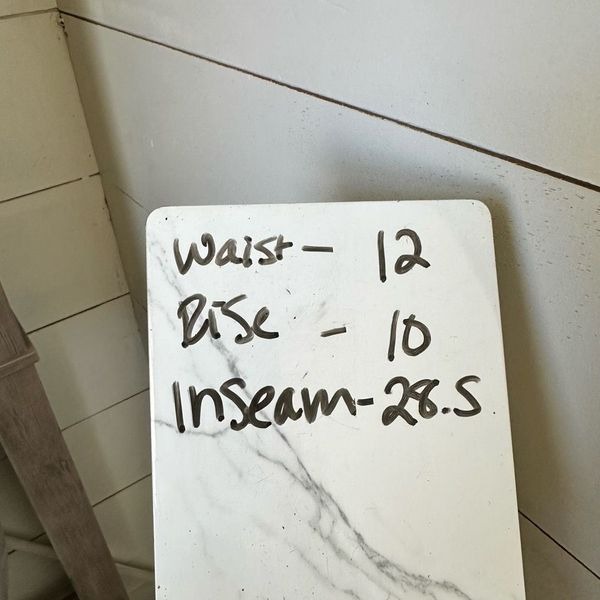 Waist - 12
Rise - 10
Inseam - 28.5